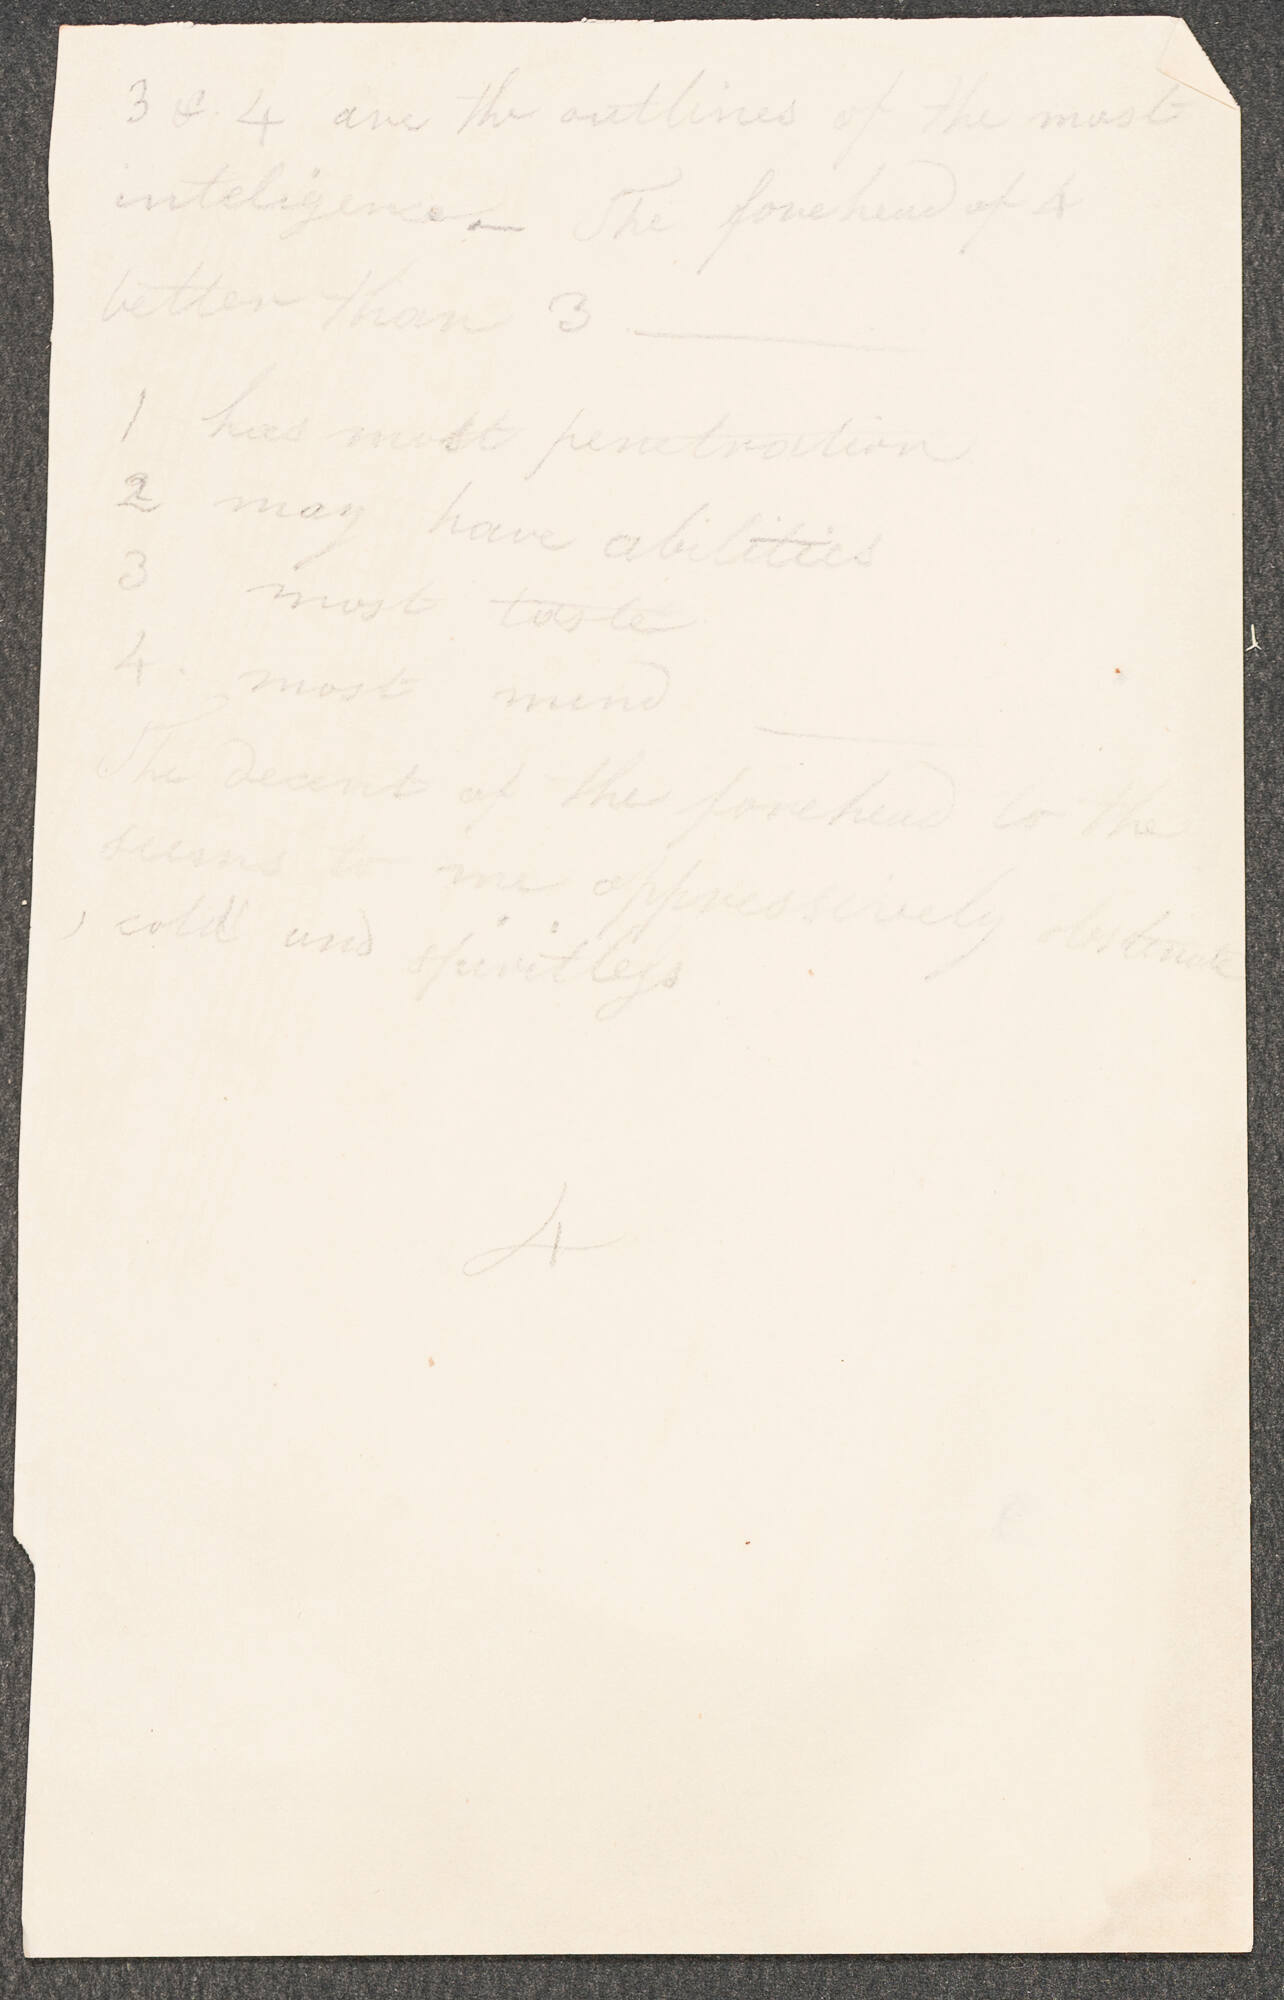 3 & 4 are the outlines of the most
inteligence. The forehead of 4
better than 3
1 has most penetration
2 may have abilities
3 most taste
4. most mind
The decent of the forehead to the
seems to me oppressively obstinate
, cold and spiritless
4